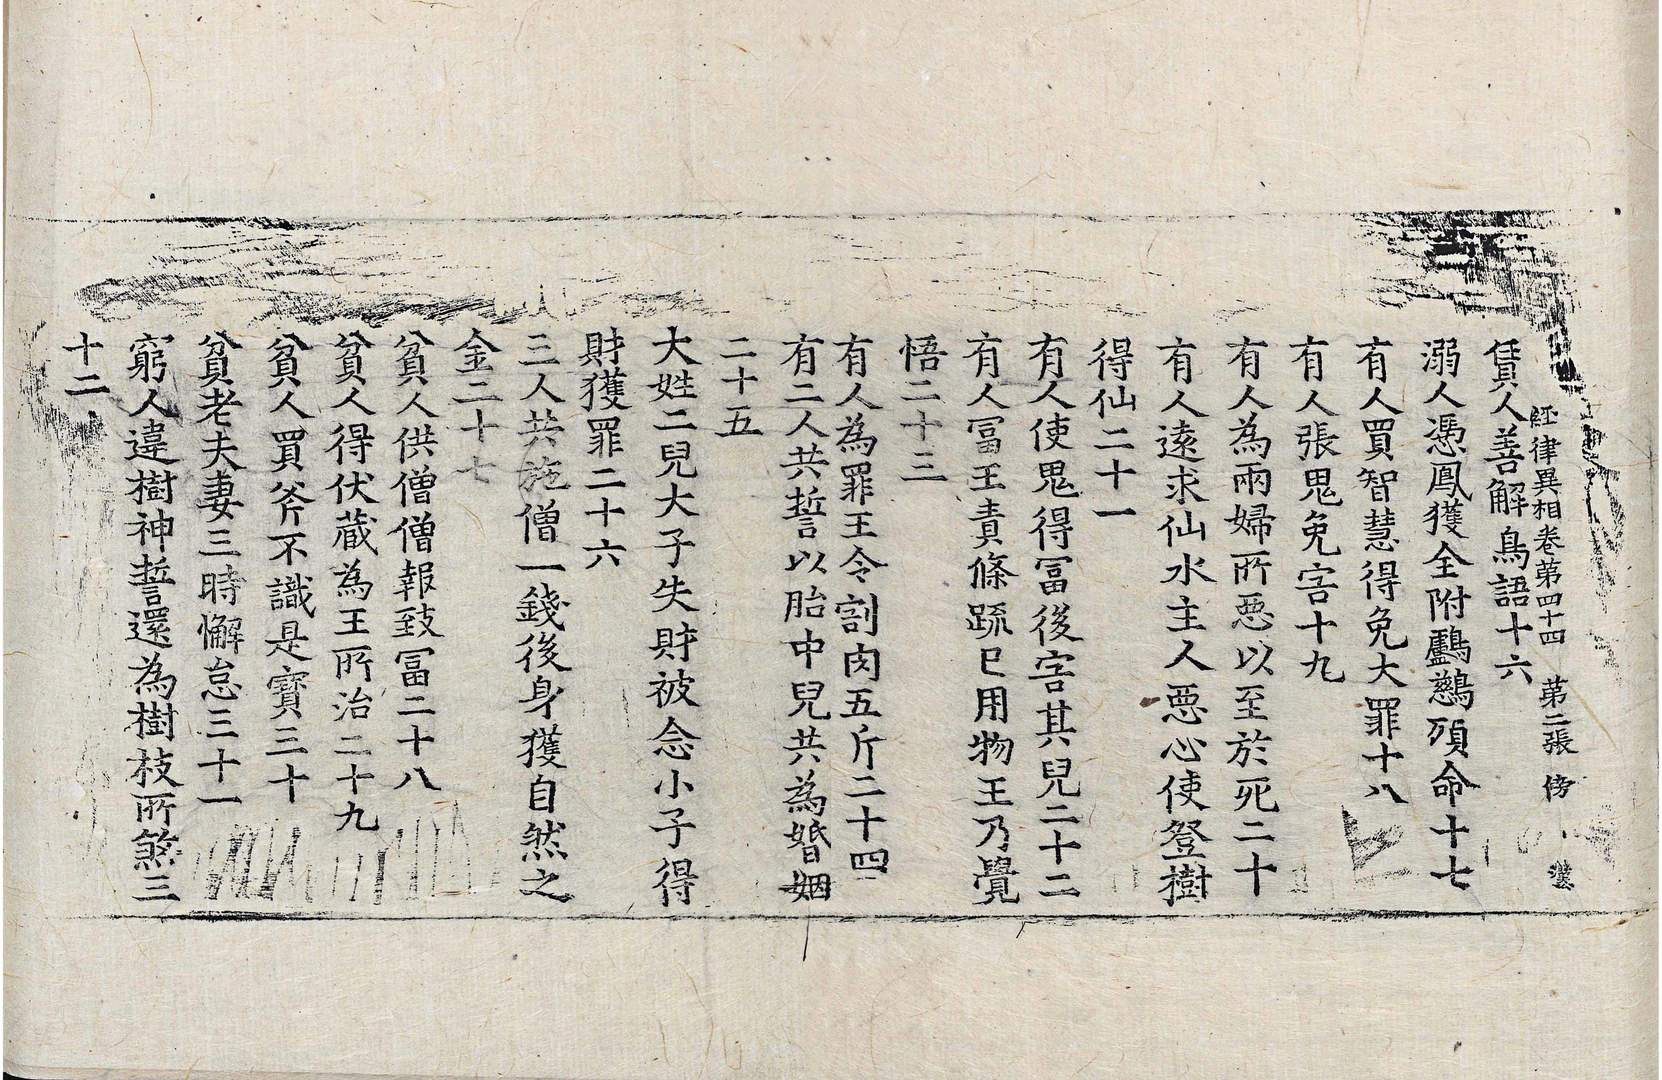 經律異相卷第四十四　第二張　傍
賃人善解鳥語十六
溺人憑鳳獲全附鸕鷀殞命十七
有人買智慧得免大罪十八
有人張鬼免害十九
有人為兩婦所惡以至於死二十
有人遠求仙水主人惡心使登樹
得仙二十一
有人使鬼得冨後害其兒二十二
有人冨王責條疏已用物王乃覺
悟二十三
有人為罪王令割肉五斤二十四
有二人共誓以胎中兒共為婚姻
二十五
大姓二兒大子失財被念小子得
財獲罪二十六
三人共施僧一錢後身獲自然之
金二十七
貧人供僧僧報致冨二十八
貧人得伏蔵為王所治二十九
貧人買斧不識是寳三十
貧老夫妻三時懈怠三十一
窮人違樹神誓還為樹枝所煞三
十二